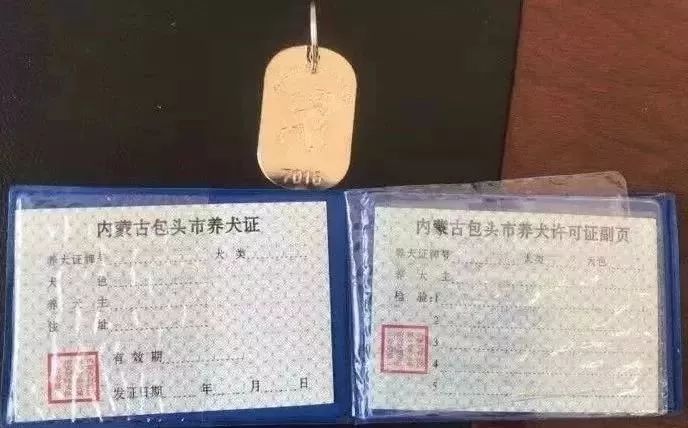 7016
内蒙古包头市养犬证
养犬证牌号 犬类
犬色
养犬主
住址
有效期
发证日期 年 月 日
内蒙古包头市养犬许可证副页
养犬证牌号 犬类 犬色
养犬主
检验:1
2
3
4
5